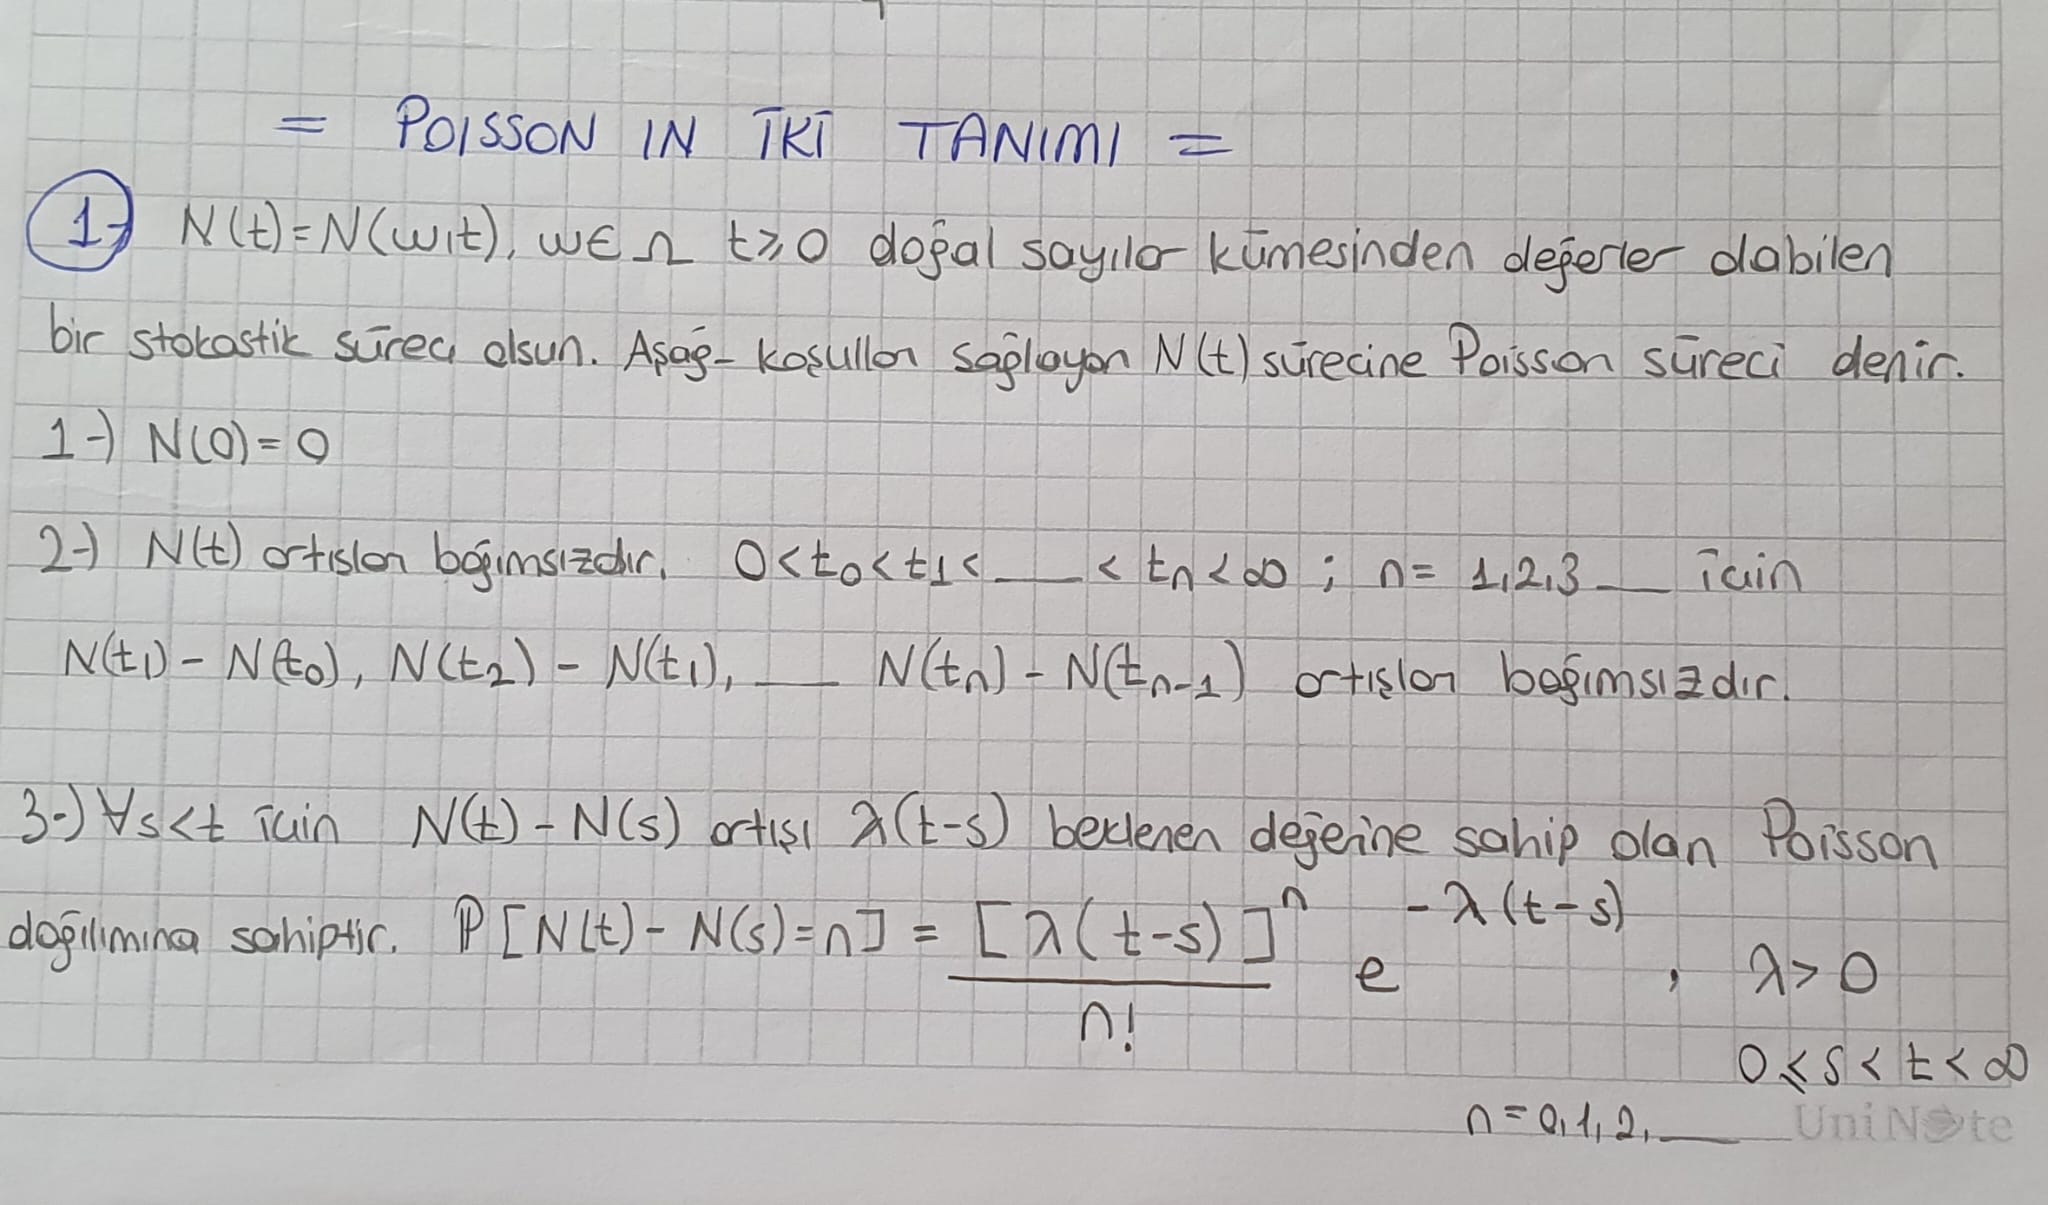 = POISSON IN İKİ TANIMI =
1-) N(t)=N(w,t), w∈Ω t≥0 doğal sayılar kümesinden değerler alabilen
bir stokastik süreci olsun. Aşağ- koşulları sağlayan N(t) sürecine Poisson süreci denir.
1-) N(0)=0
2-) N(t) artışları bağımsızdır. 0<t₀<t₁<___<tₙ<∞ ; n= 1,2,3___ için
N(t₁)-N(t₀), N(t₂)-N(t₁), ___ N(tₙ)-N(tₙ₋₁) artışları bağımsızdır.
3-) ∀s<t için N(t)-N(s) artışı λ(t-s) beklenen değerine sahip olan Poisson
dağılımına sahiptir. ℙ[N(t)-N(s)=n] = [λ(t-s)]ⁿ/n! e^-λ(t-s) , λ>0
0≤s<t<∞
n=0,1,2,___
UniNote